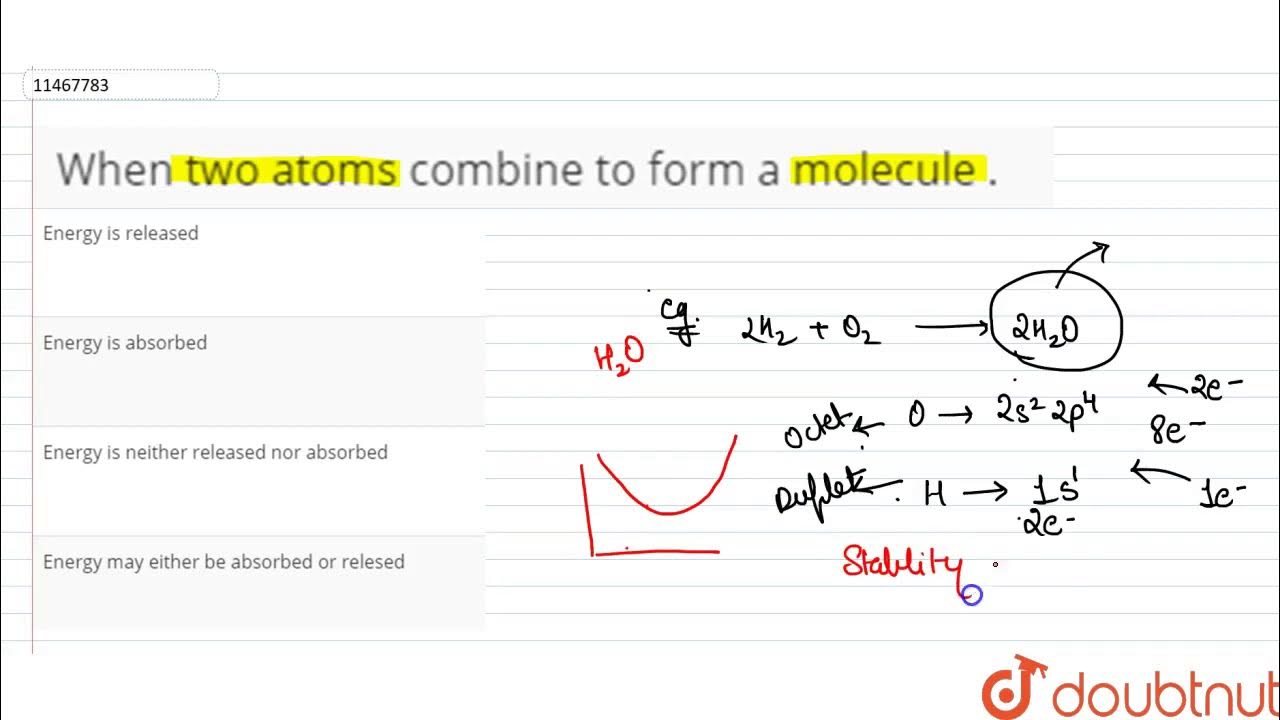 11467783
When two atoms combine to form a molecule .
Energy is released
Energy is absorbed
Energy is neither released nor absorbed
Energy may either be absorbed or relesed
eg.
2H₂ + O₂ → 2H₂O
H₂O
Octet ← O → 2s² 2p⁴ ← 2e⁻
8e⁻
Duplet ← H → 1s¹ ← 1e⁻
2e⁻
Stablity
doubtnut